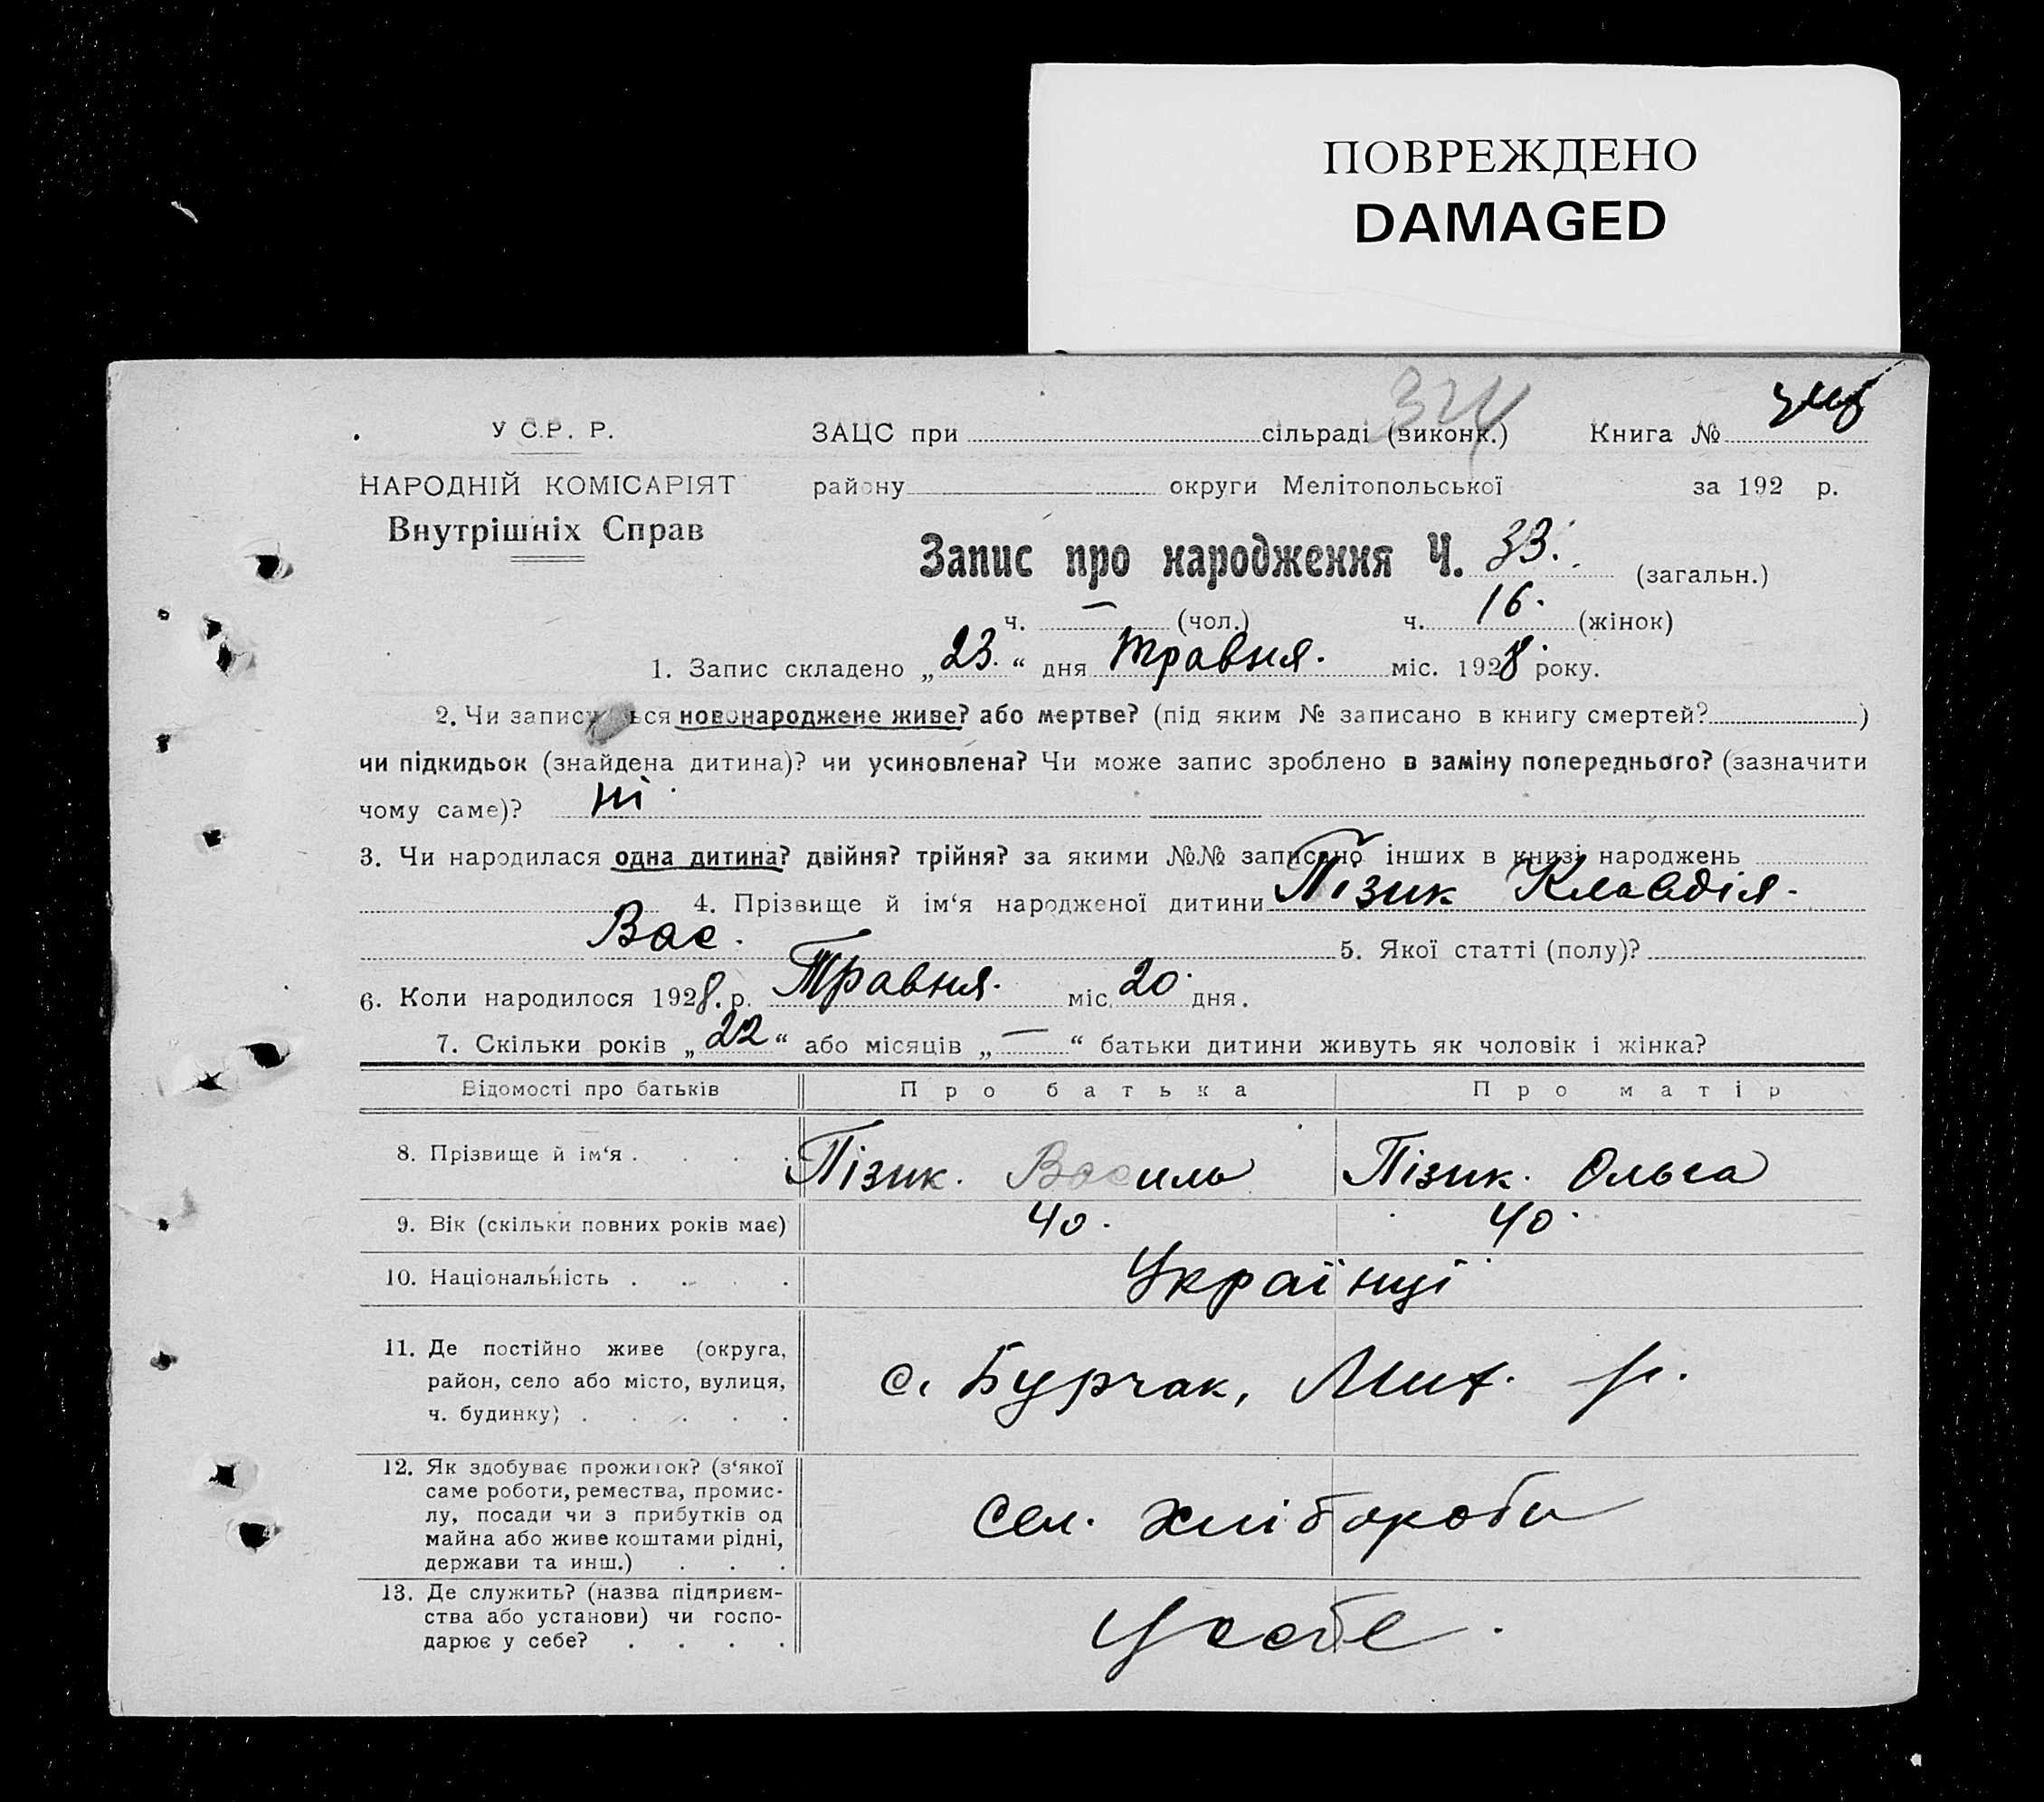 ПОВРЕЖДЕНО
DAMAGED
324
У С.Р. Р. ЗАЦС при сільраді (виконк.) Книга №
НАРОДНІЙ КОМІСАРІЯТ району округи Мелітопольської за 192 р.
Внутрішніх Справ
Запис про народження Ч. 33. (загальн.)
ч. — (чол.) ч. 16. (жінок)
1. Запис складено „23.“ дня травня. міс. 1928 року.
2. Чи запису ься новонароджене живе? або мертве? (під яким № записано в книгу смертей? )
чи підкидьок (знайдена дитина)? чи усиновлена? Чи може запис зроблено в заміну попереднього? (зазначити
чому саме)? ні
3. Чи народилася одна дитина? двійня? трійня? за якими №№ записано інших в книзі народжень
4. Прізвище й ім‘я народженої дитини Пізик Клавдія.
Вас. 5. Якої статті (полу)?
6. Коли народилося 1928. р. Травня. міс. 20 дня.
7. Скільки років „22“ або місяців „—“ батьки дитини живуть як чоловік і жінка?
Відомості про батьків Про батька Про матір
8. Прізвище й ім‘я . . . . Пізик. Василь Пізик. Ольга
9. Вік (скільки повних років має) 40. 40.
10. Національність . . . . Українці
11. Де постійно живе (округа,
район, село або місто, вулиця, с. Бурчак, Мих. р.
ч. будинку) . . . . .
12. Як здобуває прожиток? (з‘якої
саме роботи, ремества, промис-
лу, посади чи з прибутків од сел. хлібороби
майна або живе коштами рідні,
держави та инш.) . . .
13. Де служить? (назва підприєм-
ства або установи) чи госпо- У себе.
дарює у себе? . . . .